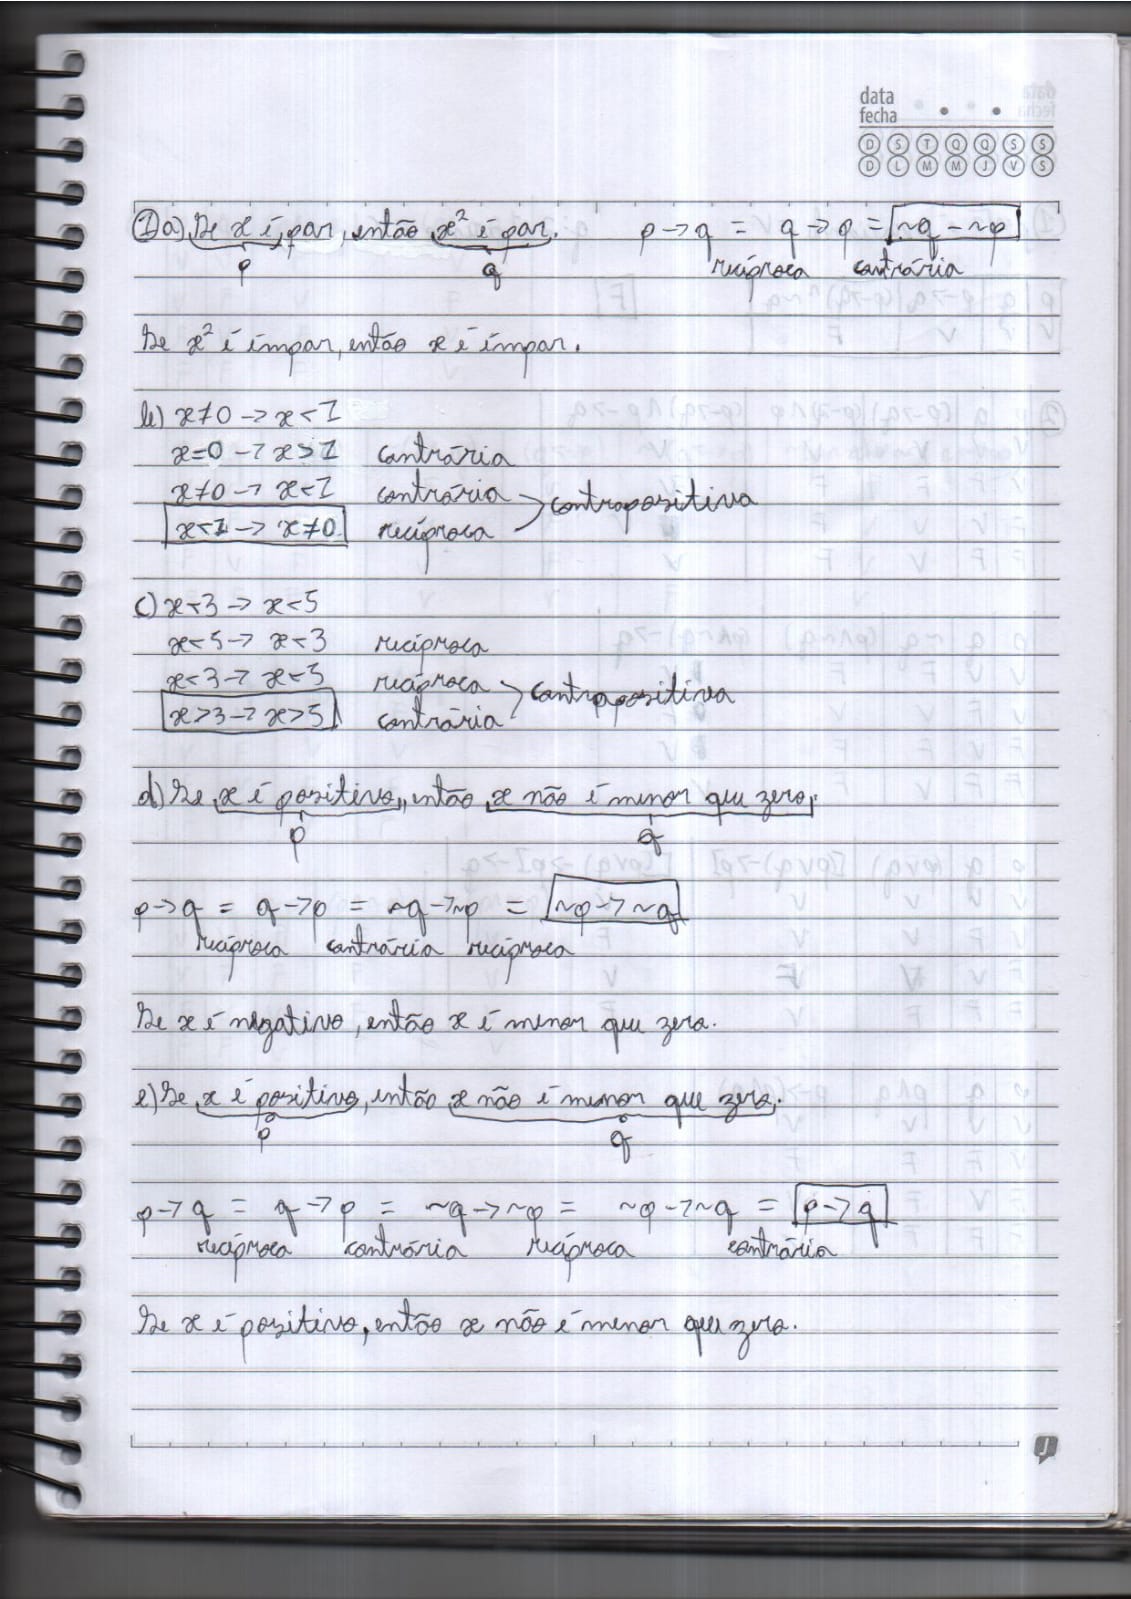 data
fecha
D S T Q Q S S
D L M M J V S
1 a) Se x é par, então x² é par. p → q = q → p = ~q - ~p
p q recíproca contrária
Se x² é ímpar, então x é ímpar.
b) x≠0 → x<1
x=0 → x>1 contrária
x≠0 → x<1 contrária
contrapositiva
x<1 → x≠0 recíproca
c) x<3 → x<5
x<5 → x<3 recíproca
x<3 → x<5 recíproca
contrapositiva
x>3 → x>5 contrária
d) Se x é positivo, então x não é menor que zero,
p q
p → q = q → p = ~q → ~p = ~p → ~q
recíproca contrária recíproca
Se x é negativo, então x é menor que zero.
e) Se x é positivo, então x não é menor que zero.
p q
p → q = q → p = ~q → ~p = ~p → ~q = p → q
recíproca contrária recíproca contrária
Se x é positivo, então x não é menor que zero.